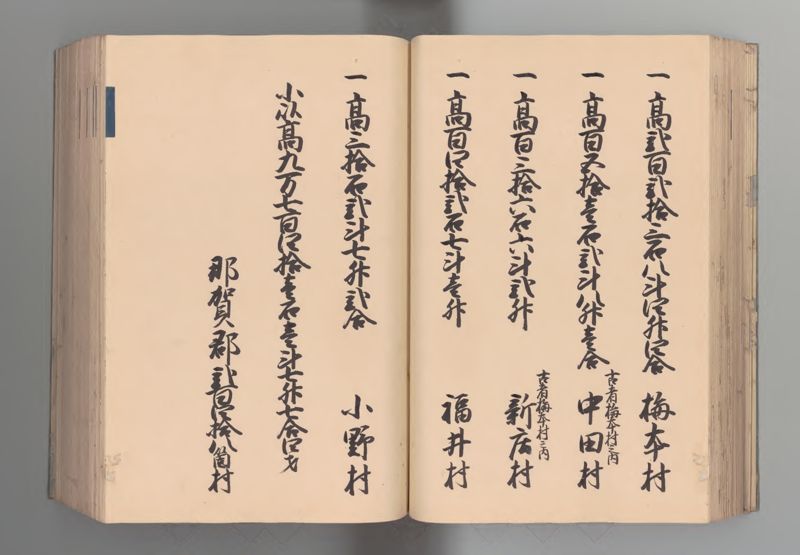 一高弐百弐拾三石八斗四升四合 梅本村
一高百五拾壱石弐斗八升壱合 古者梅本村之内 中田村
一高百三拾六石六斗弐升 古者梅本村之内 新庄村
一高百四拾弐石七斗壱升 福井村
一高三拾石弐斗七升弐合 小野村
小以高九万七百四拾壱石壱斗七升七合四才
那賀郡弐百四拾八箇村